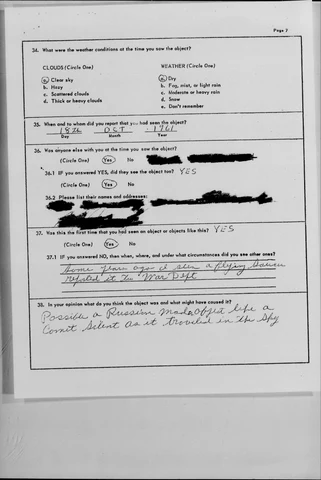 Page 7
34. What were the weather conditions at the time you saw the object?
CLOUDS (Circle One) WEATHER (Circle One)
a. Clear sky a. Dry
b. Hazy b. Fog, mist, or light rain
c. Scattered clouds c. Moderate or heavy rain
d. Thick or heavy clouds d. Snow
e. Don't remember
35. When and to whom did you report that you had seen the object?
18th OCT 1961
Day Month Year
36. Was anyone else with you at the time you saw the object?
(Circle One) Yes No
36.1 IF you answered YES, did they see the object too? YES
(Circle One) Yes No
36.2 Please list their names and addresses:
37. Was this the first time that you had seen an object or objects like this? YES
(Circle One) Yes No
37.1 IF you answered NO, then when, where, and under what circumstances did you see other ones?
Some years ago I seen a Flying Saucer
reported it to "War Dept
38. In your opinion what do you think the object was and what might have caused it?
Possible a Russian Made Object like a
Comet Silent as it traveled in the Sky